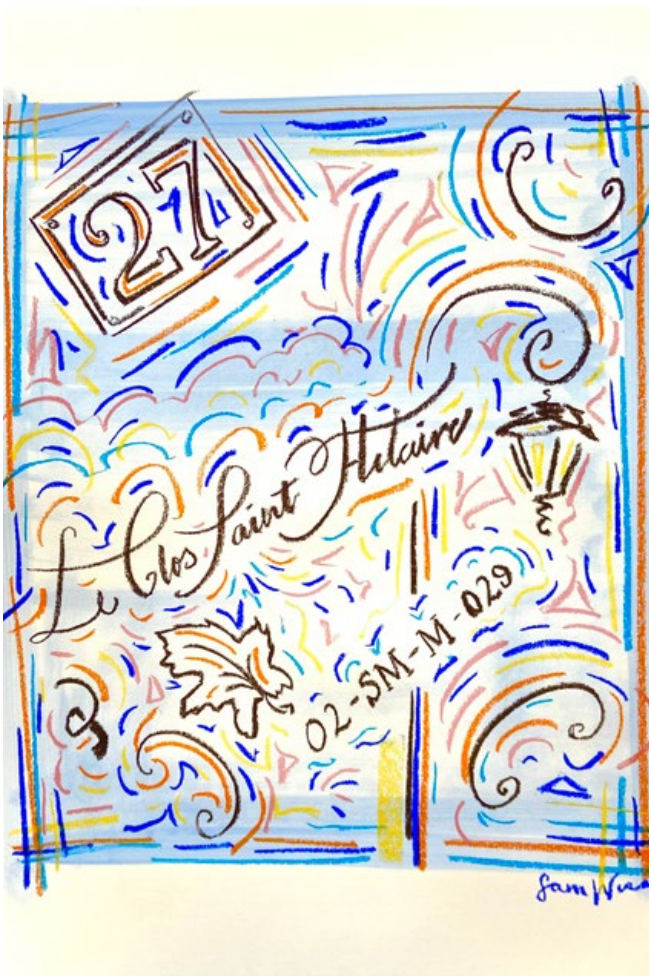 27
Le Clos Saint Hilaire
02-SM-M-029
Sam